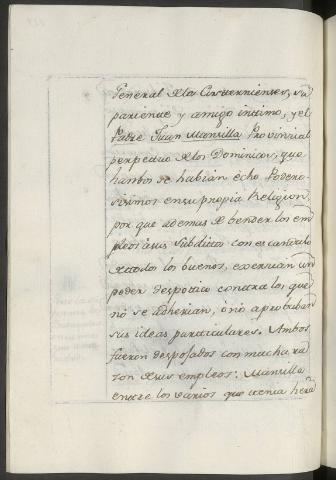 General de los Cistercienses, su
pariente y amigo intimo, y el
Padre Juan Mansilla Provinsial
perpetuo de los Dominicos, que
hambos se habian echo Podero-
sisimos en su propia Religion,
por que ademas de bender los em
pleos à sus Subditos con escandalo
de todos los buenos, exercian un
poder despotico contra los que
nò se adherian, ò nò aprobaban
sus ideas particulares. Ambos
fueron despojados con mucha ra
zon de sus empleos: Mansilla
entre los varios que tenia hera